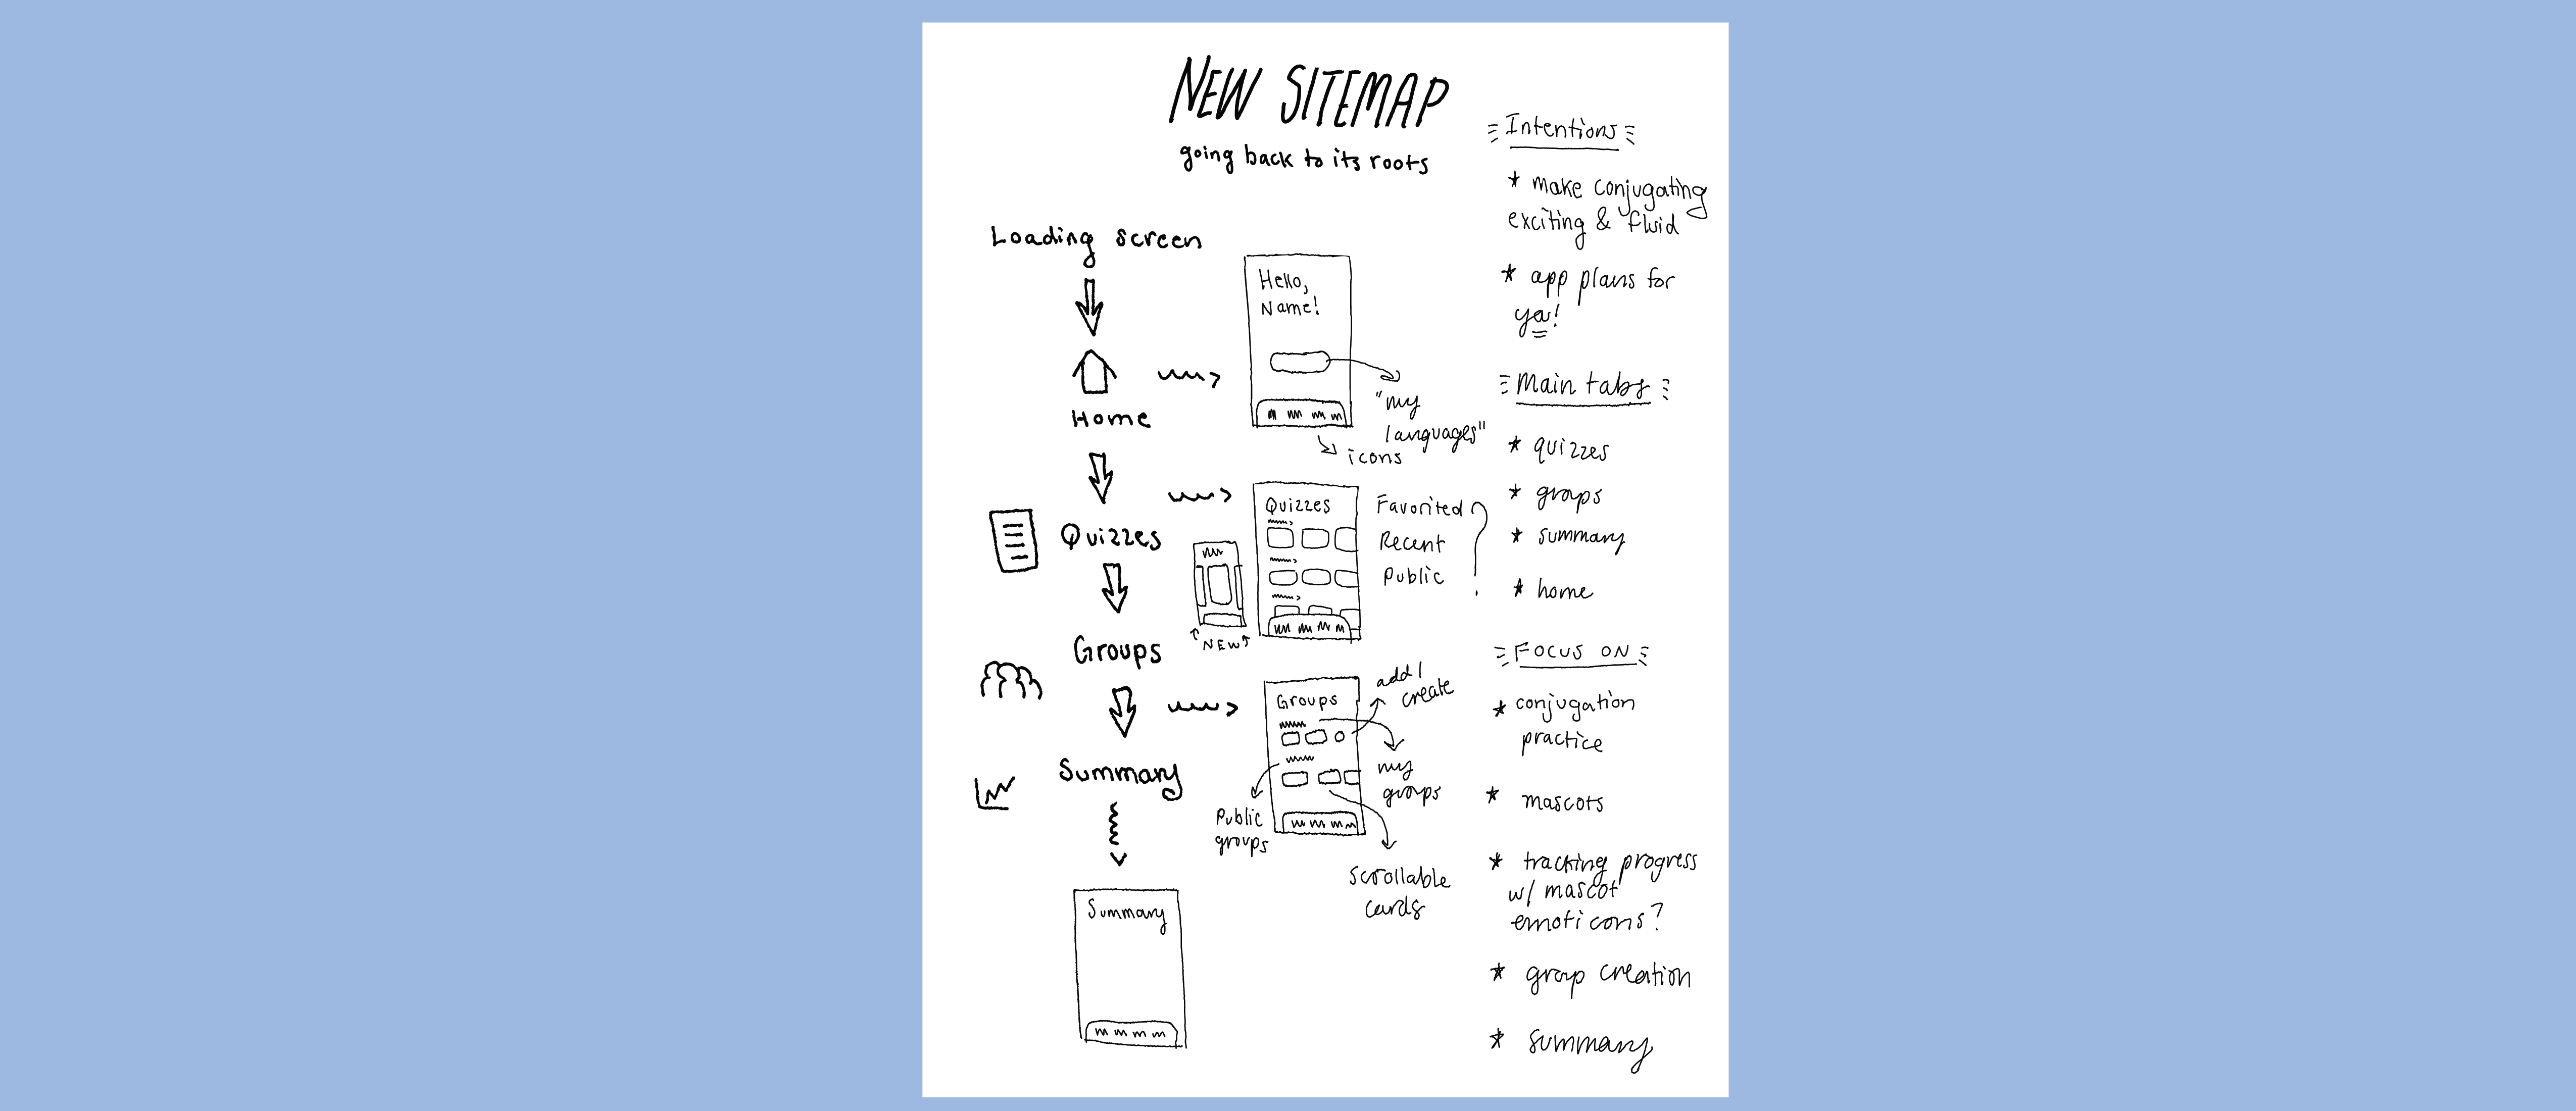 NEW SITEMAP
going back to its roots
Loading screen
Home
Quizzes
Groups
Summary
Hello,
Name!
"my
languages"
icons
Quizzes
Favorited
Recent
Public
?
NEW
Groups
add/
create
my
groups
Public
groups
Scrollable
cards
Summary
Intentions
* make conjugating
exciting & fluid
* app plans for
ya!
Main tabs
* quizzes
* groups
* summary
* home
FOCUS ON
* conjugation
practice
* mascots
* tracking progress
w/ mascot
emoticons?
* group creation
* summary